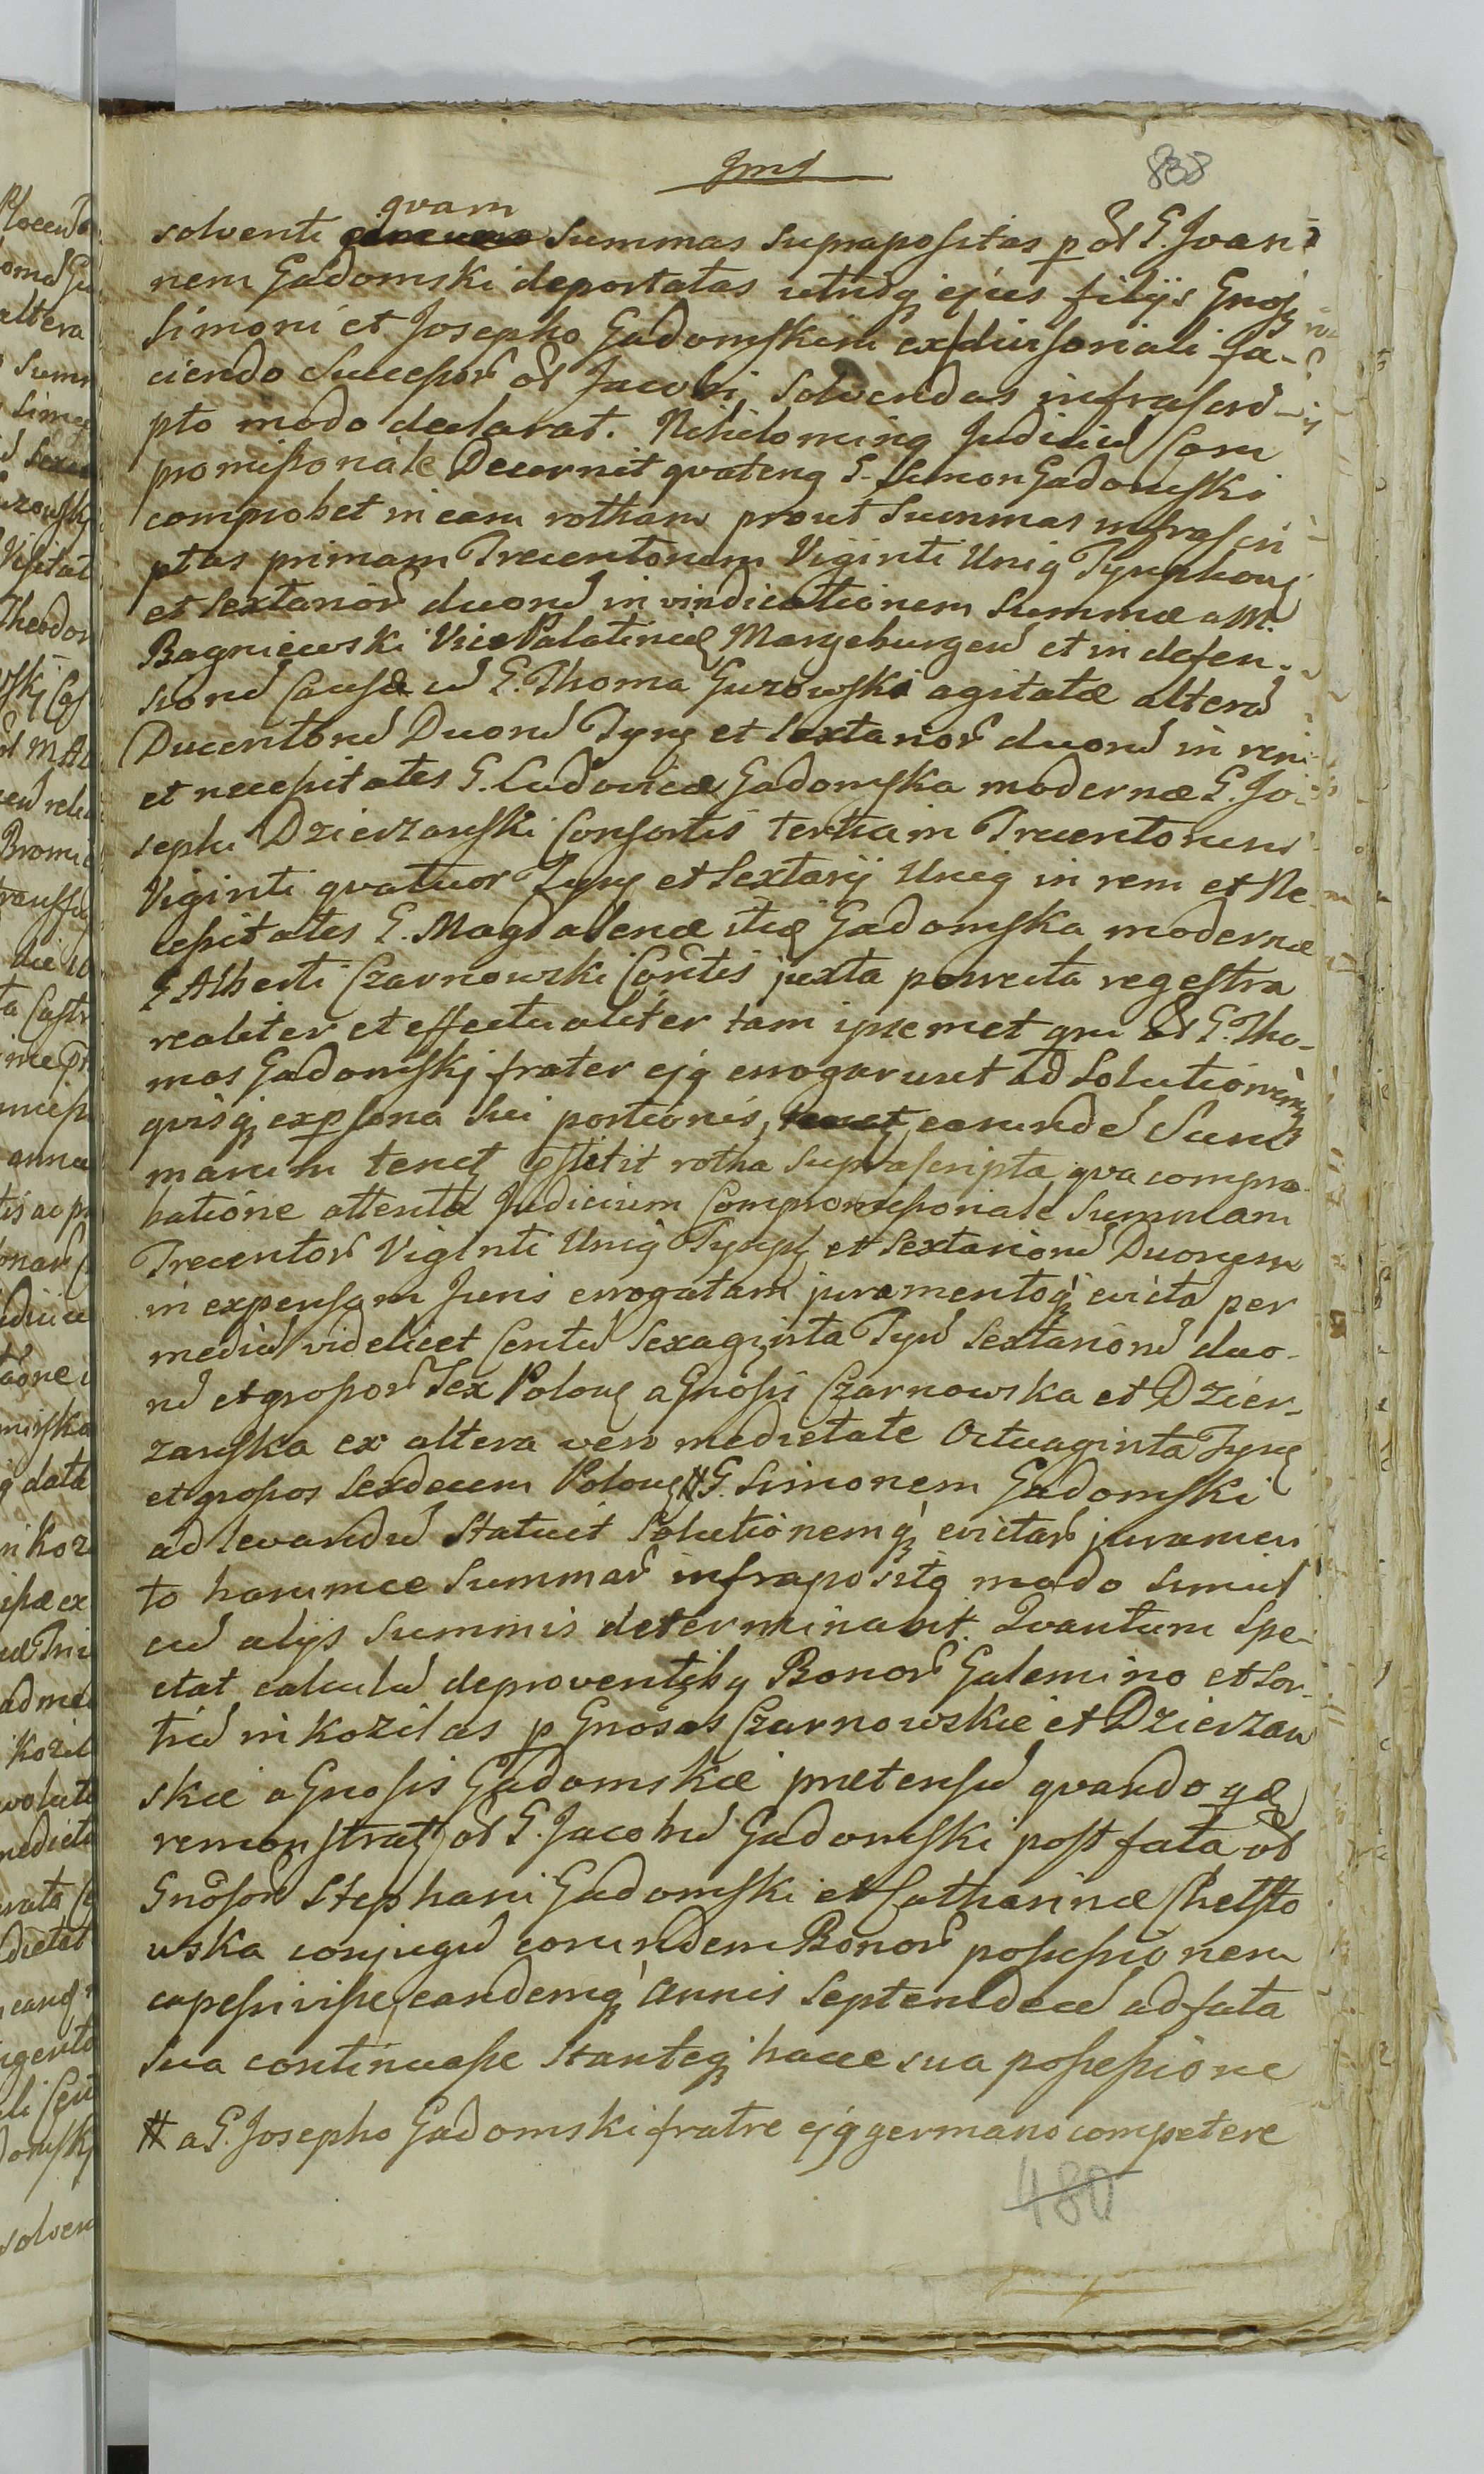 838
quam
solventi summas suprapositas p od G. Joan-
nem Gadomski deportatas utriusq ejus filijs Gnosj
Simoni et Josepho Gadomskim ex divisoriali fa-
ciendo Successor od Jacobi solvendas infrascri-
pto modo declarat. Nihilominq Judiciu Com
promissoriale Decernit qvatenq G. Simon Gadomski
comprobet in eam rotham prout Summas infrascri
ptas primam Trecentorum Viginti Uniq Tynphonj
et Sextanor duoru in vindicationem Summæ a M.
Bagniewski Vice Palatino Maryeburgen et in defen-
sionu Causæ cu G. Thoma Gurowski agitatæ altera
Ducentoru Duoru Tynf et Sextanor duoru in rem
et necessitates G. Ludovicæ Gadomska modernæ G. Jo-
sephi Dzierzanski Consortis tertiam Trecentorum
Viginti qvatuor Tynf et Sextarij Uniq in rem et Ne-
cessitates G. Magdalenæ itq Gadomska modernæ
G Alberti Czarnowski Contis juxta porrecta regestra
realiter et effectualiter tam ipsemet qm od G. Tho-
mas Gadomskj frater ejq errogarunt ad Solutionemq
qvisq ex psona sui portionis, earunde Sum
marum tenet extitit rotha suprascripta qva compro-
batione attenta Judicium Compromissoriale Summam
Trecentor Viginti Uniq Tynph et Sextarionu Duorum
in expensam Juris errogatam juramentoq evicta per
mediu videlicet Centu Sexaginta Tynf Sextarionu duo-
ru et grossor Sex Polonj a Gnosis Czarnowska et Dzier-
zanska ex altera vero medietate Octuaginta Tynf
et grossos Sexdecem Polonj # G. Simonem Gadomski
ad levandu Statuit Solutionemq evictar juramen
to harumce Summar infraposito modo simul
cu alijs Summis determinabit. Qvantum spe-
ctat calculu deproventibq Bonor Galemino et Sor-
tiu in Kozilas p Gnosas Czarnowskie et Dzierzan
skie a Gnosis Gadomskie prætensu qvando qd
remonstrat od G. Jacobu Gadomski post fata od
Gnosor Stephani Gadomski et Catharinæ Chelsto
wska conjugu eorundem Bonor possessionem
capessivisse, eandemq Annis Septemdecé ad fata
sua continuasse stanteq hacce sua possessione
# a G. Josepho Gadomski fratre ejq germano competere
480